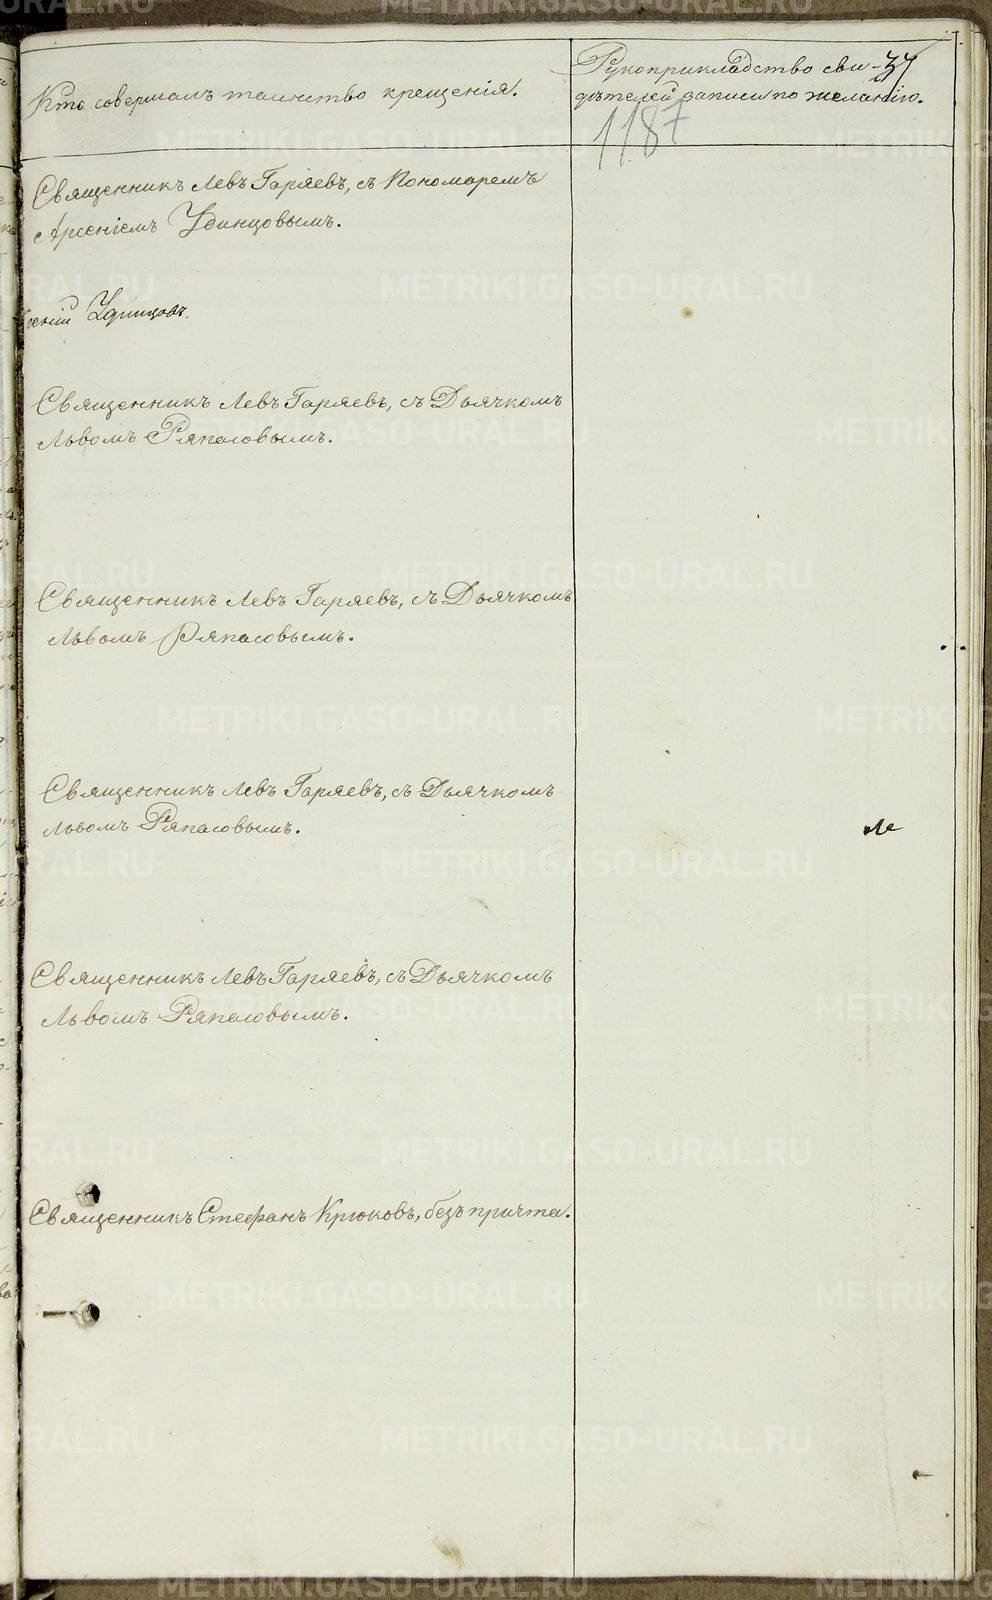 Кто совершалъ таинство крещенія.
Рукоприкладство сви-
дѣтелей записи по желанію.
37
1187
Священникъ Левъ Гаряевъ, съ Пономаремъ
Арсеніемъ Удинцовымъ.
сеній Удинцовъ.
Священникъ Левъ Гаряевъ, съ Дьячкомъ
Львомъ Ряпасовымъ.
Священникъ Левъ Гаряевъ, съ Дьячкомъ
Львомъ Ряпасовымъ.
Священникъ Левъ Гаряевъ, съ Дьячкомъ
Львомъ Ряпасовымъ.
Ле
Священникъ Левъ Гаряевъ, съ Дьячкомъ
Львомъ Ряпасовымъ.
Священникъ Стефанъ Крюковъ, безъ причта.
METRIKI.GASO-URAL.RU